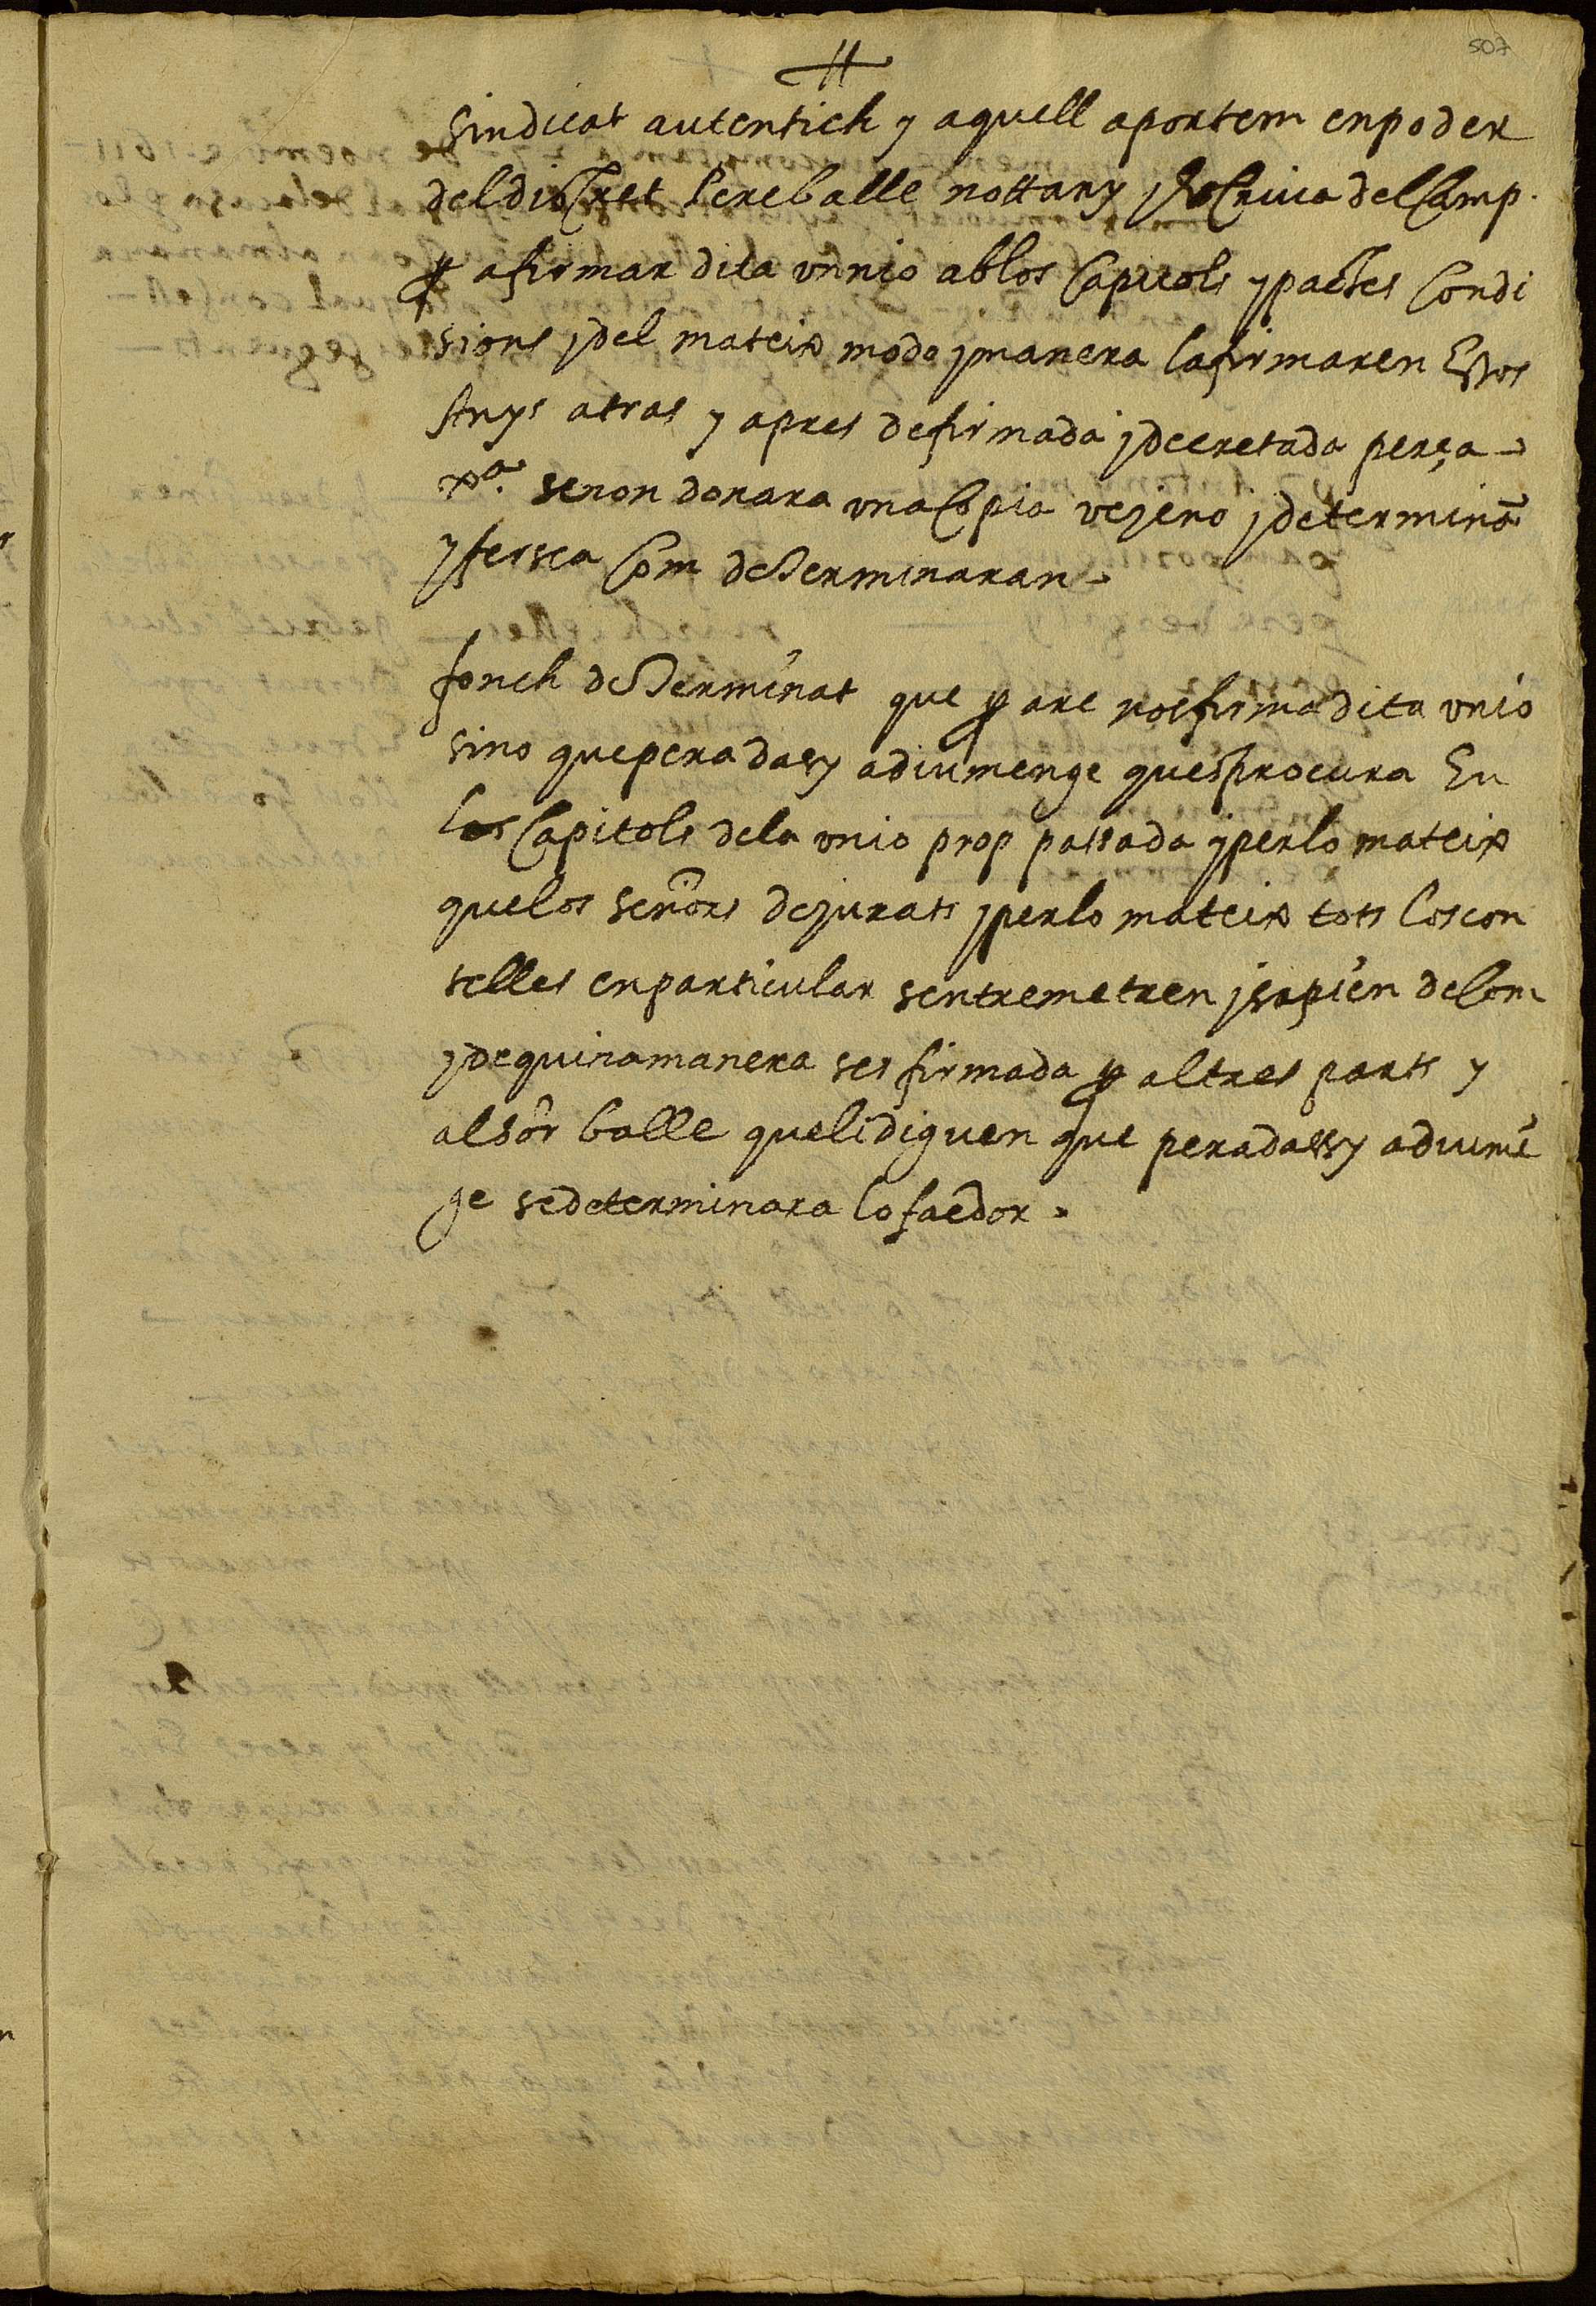 507
sindicat autentich y aquell aportem enpoder
deldiscret Pereballe nottary y escriva delCamp.
per afirmar dita unnio ablos Capitols ypactes Condi
sions ydel mateix modo ymanera lafirmaren Essos
Anys atras y apres defirmada ydecretada perça
xa. senon donara unaCopia vejeno ydeterminã
yfersea Com determinaran
fonch determinat que per are nosfirma dita unio
sino queperadasy adiumenge quesprocura Eu
los Capitols dela unio prop passada yperlo mateix
quelos señors dejurats yperlo mateix tots loscon
selles enparticular sentremetren ysapien deCom
ydequinamanera ses firmada per altres parts y
alsõr balle quelidiguen que peradassy adiumẽ
ge sedeterminara lofaedor.